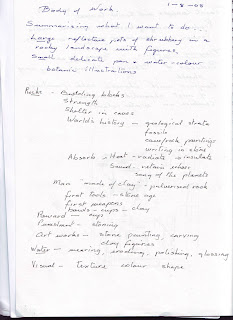 Body of Work. 1-8-08
Summarising what I want to do...
Large reflective pots of shrubbery in a
rocky landscape with figures.
Small delicate pen & water-colour
botanic illustrations
Rocks - building blocks
Strength
Shelter in caves
World's history - geological strata
fossils
cave/rock paintings
writing in stone
Absorbs - Heat - radiate & insulate
Sound - retain noise
song of the planets
Man made of clay - pulverised rock
first tools - stone age
first weapons
bowls - cups - clay
Reward - cups
Punishment - stoning
Art works - stone painting, carving
clay figures
Water - wearing, eroding, polishing, glossing
Visual - Texture colour shape